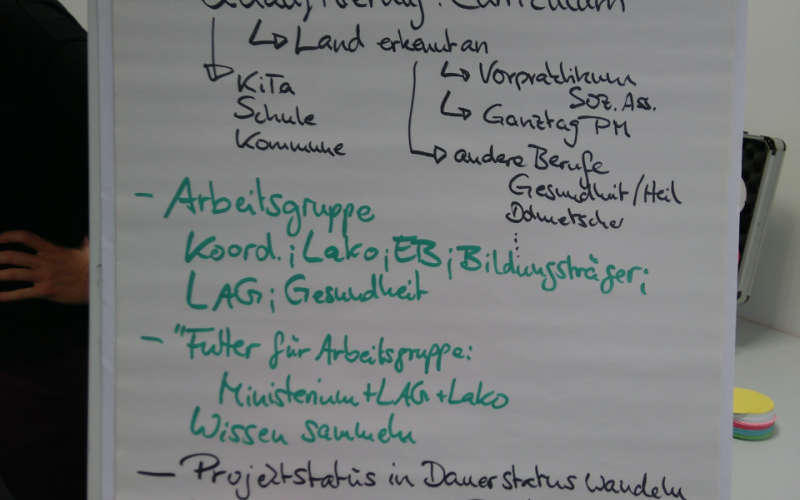 Qualifizierung: Curriculum
↳ Land erkennt an
KiTa
Schule
Kommune
↳ Vorpraktikum
Soz. Ass.
↳ Ganztag PM
andere Berufe
Gesundheit/Heil
Dolmetscher
⋮
- Arbeitsgruppe
Koord.; Lako; EB; Bildungsträger;
LAG; Gesundheit
- "Futter für Arbeitsgruppe:
Ministerium+LAG+Lako
Wissen sammeln
- Projektstatus in Dauerstatus wandeln